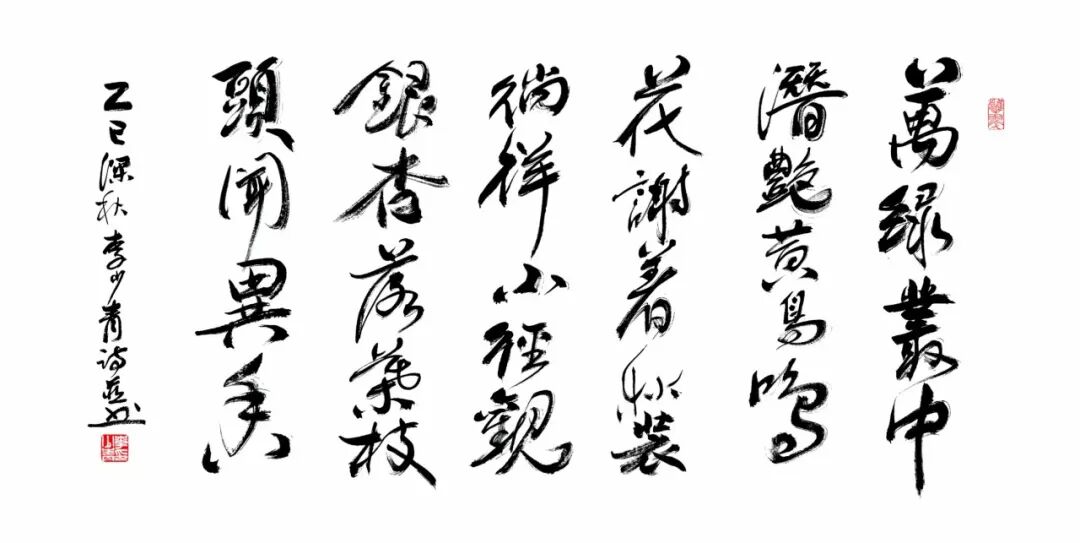 萬綠叢中
潛艷黃鳥鳴
花謝着秋裝
徜徉小徑觀
銀杏落葉枝
頭聞異香
乙巳深秋李少青詩並書